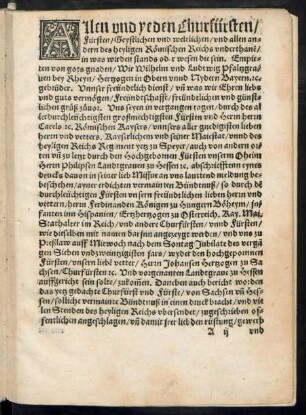 Allen und yeden Churfürsten/
Fürsten/ Geystlichen und weltlichen/ und allen an
dern des heyligen Römischen Reichs underthanē/
in was wirden stands od. wesen die sein. Empie
ten von gots gnaden/ Wir Wilhelm und Ludwig Pfaltzgra
uen bey Rheyn/ Hertzogen in Obern unnd Nydern Bayern.ꝛc.
gebrüder. Unnser freundtlich dienst/ uñ was wir Ehren liebs
und guts vermögen/ Freündtschafft/ freündtlichen und günst
lichen grůß zůuor. Uns seyen in vergangen tagen/ durch des al
lerdurchleüchtigsten großmechtigsten Fürsten und Herrn herrn
Carels ꝛc. Römischen Kaysers/ unnsers aller gnedigisten lieben
herrn und vetters. Kayserlichen und seine Maiestat/ unnd des
heyligen Reichs Regiment yetz zu Speyr/ auch von andern or
ten uñ yetz letzt durch den Hochgebornnen Fürsten unsern Oheim
Herrn Philipsen Landtgrauen zu Hessen ꝛc. abschrifften eyns
drucks dauon in seiner lieb Missiue an uns lauttend meldung be
schehen/ ayner erdichten vermainten Bündtnuß/ so durch die
durchleüchtigen Fürsten unsern freündtlichen lieben herrn und
vettern/ herrn Ferdinanden Königen zu Hungern Böheim/ Jn
fanten inn Hispanien/ Ertzhertzogen zu Osterreich. Kay. Mai.
Stathalter im Reich/ und andere Churfürsten/ unnd Fürsten/
wie dieselben mit namen darein angezeygt werden/ und zu
Preßlaw auff Mitwoch nach dem Sontag Jubilate des vergā
gen Siben undzweintzigisten jars/ wyder den hochgebornnen
Fürsten/ unsern lieb vetter/ Herrn Johansen Hertzogen zu Sa
chsen/ Churfürsten ꝛc. Und vorgenanten Landtgrauen zu Hessen
auffgericht sein solte/ zukommen. Daneben auch bericht worden
das yetz gedachte Churfürst und Fürste/ von Sachsen uñ Hes-
sen/ solliche vermainte Bündtnuß in einen druck bracht/ und vie
len Stenden des heyligen Reichs ubersendet/ zugeschicken of-
fentlichen angeschlagen/ uñ damit jrer lieb den rüstung/ gewerb
A ij und